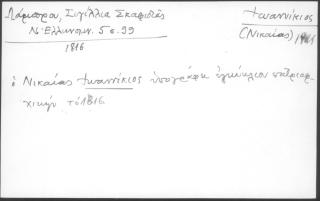 Λάμπρου, Σιγίλλια Σκαφιδιᾶς
Ν. Ἑλληνομν. 5 σ. 99
1816
Ἰωαννίκιος
(Νικαίας)
ὁ Νικαίας Ἰωαννίκιος ὑπογράφει ἐγκύκλιον πατριαρ-
χικὴν τὸ 1816